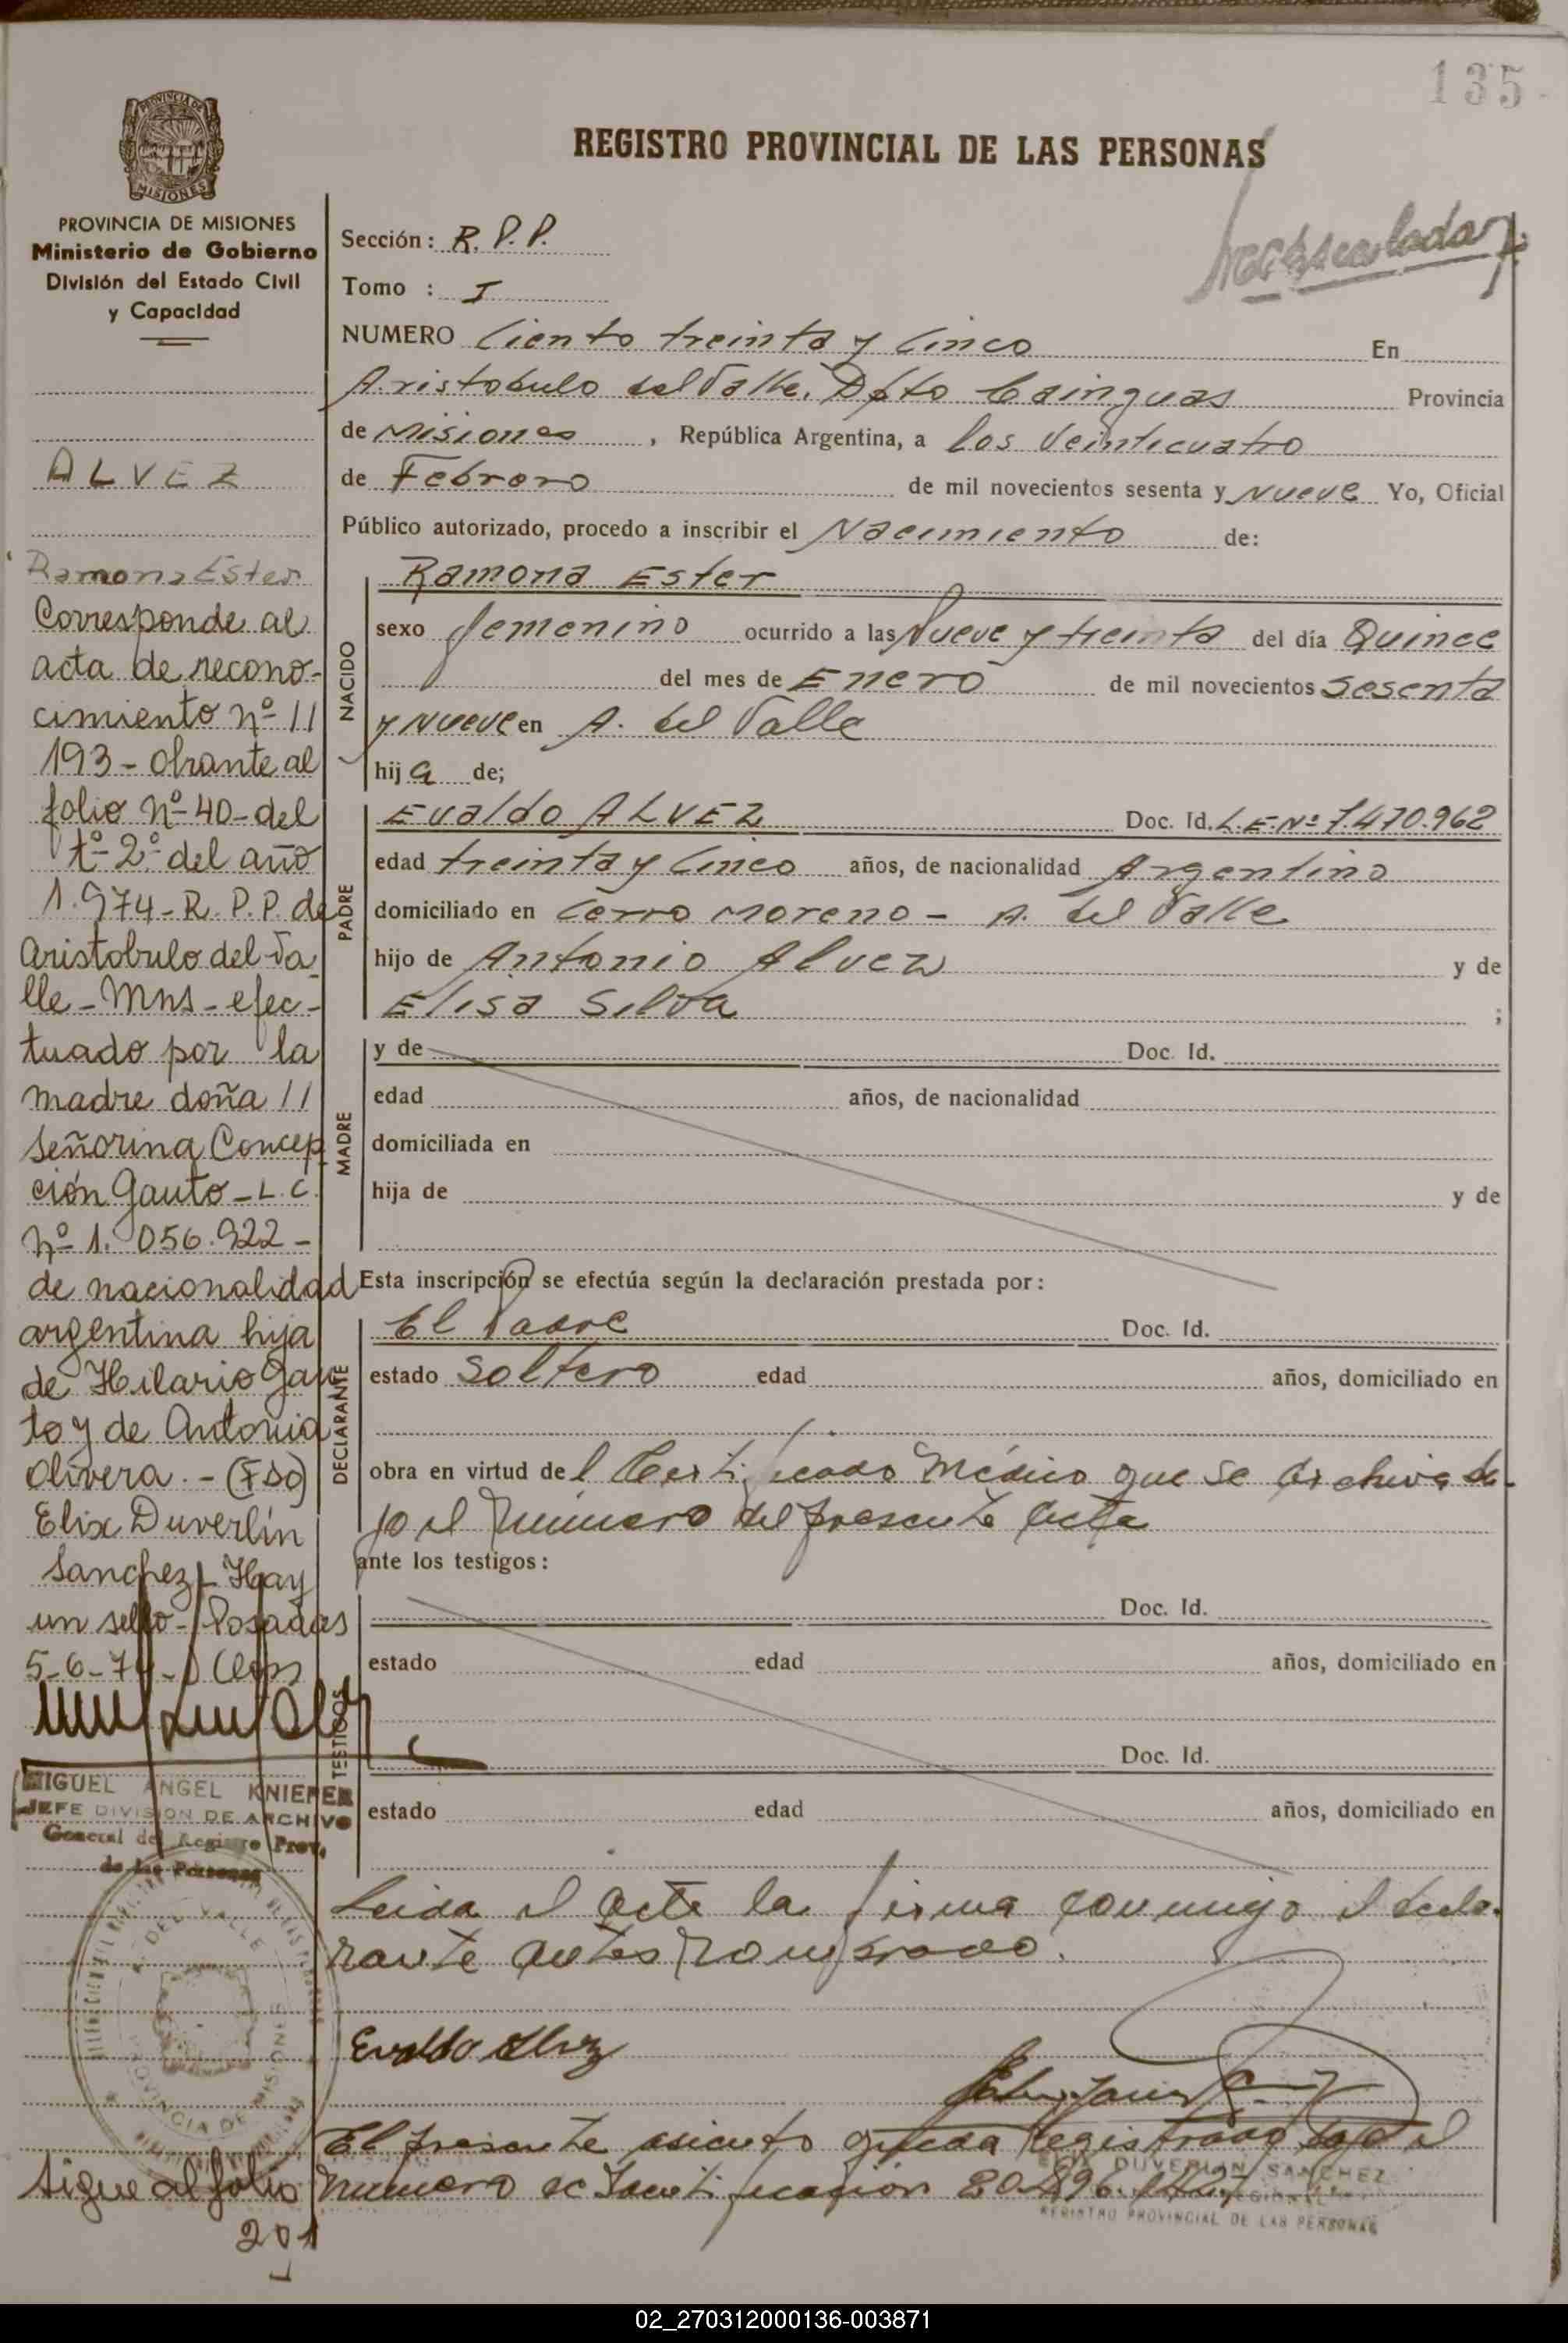 135
PROVINCIA DE
MISIONES
REGISTRO PROVINCIAL DE LAS PERSONAS
PROVINCIA DE MISIONES
Ministerio de Gobierno
División del Estado Civil
y Capacidad
ALVEZ
Ramona Ester
Corresponde al
acta de recono-
cimiento nº //
193 - Obrante al
folio Nº 40 - del
tº 2º del año
1.974 - R. P. P. de
Aristobulo del Va
lle - Mns - efec-
tuado por la
madre doña //
Señorina Concep
ción Gauto - L. C.
nº 1. 056.922 -
de nacionalidad
argentina hija
de Hilario Gau
to y de Antonia
Olivera. - (FDO)
Elix Duverlín
Sanchez - Hay
un sello - Posadas
5-6-74 -
MIGUEL ANGEL KNIEPER
JEFE DIVISION DE ARCHIVO
General del Registro Prov.
de las Personas
DEL VALLE
PROVINCIA DE MISIONES
Sigue al folio
201
Sección: R. P. P.
Tomo : I
NUMERO Ciento treinta y Cinco En
Aristobulo del Valle. Dpto Cainguas Provincia
de Misiones, República Argentina, a los Veinticuatro
de Febrero de mil novecientos sesenta y Nueve Yo, Oficial
Público autorizado, procedo a inscribir el Nacimiento de:
NACIDO
Ramona Ester
sexo femenino ocurrido a las Nueve y treinta del día Quince
del mes de Enero de mil novecientos Sesenta
y Nueve en A. del Valle
hija de;
PADRE
Evaldo ALVEZ Doc. Id. L.E. Nº 7.470.962
edad treinta y Cinco años, de nacionalidad Argentino
domiciliado en Cerro Moreno - A. del Valle
hijo de Antonio Alvez y de
Elisa Silva ;
MADRE
y de Doc. Id.
edad años, de nacionalidad
domiciliada en
hija de y de
Esta inscripción se efectúa según la declaración prestada por:
DECLARANTE
El Padre Doc. Id.
estado Soltero edad años, domiciliado en
obra en virtud del Certificado Médico que se archiva ba-
jo el Número del presente Acta
ante los testigos:
TESTIGOS
Doc. Id.
estado edad años, domiciliado en
Doc. Id.
estado edad años, domiciliado en
Leida el acta la firma conmigo el decla-
rante antes nombrado.
Evaldo Alvez
El presente asiento queda Registrado bajo el
Número de Identificación 20.896.
ELIX DUVERLIN SANCHEZ
REGISTRO PROVINCIAL DE LAS PERSONAS
02_270312000136-003871